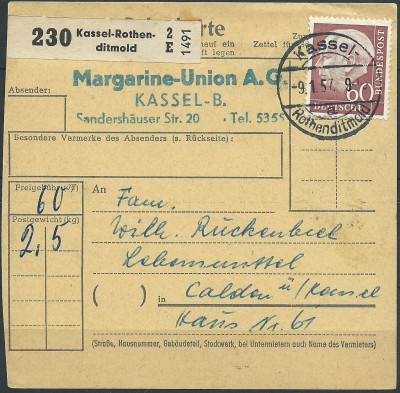 230 Kassel-Rothen-
ditmold
2
E
1491
Zettel für
legen
Margarine-Union A.G.
KASSEL-B.
Sandershäuser Str. 20 • Tel. 5355
Absender:
Besondere Vermerke des Absenders (s. Rückseite):
Kassel-
-9.1.57. 9-
Rothenditmold
60
DEUTSCHE
BUNDESPOST
60
Postgewicht (kg)
2,5
An
Fam.
Wilh. Rückenbiel
Lebensmittel
( ) in Calden ü/Kassel
Haus Nr. 61
(Straße, Hausnummer, Gebäudeteil, Stockwerk, bei Untermietern auch Name des Vermieters)